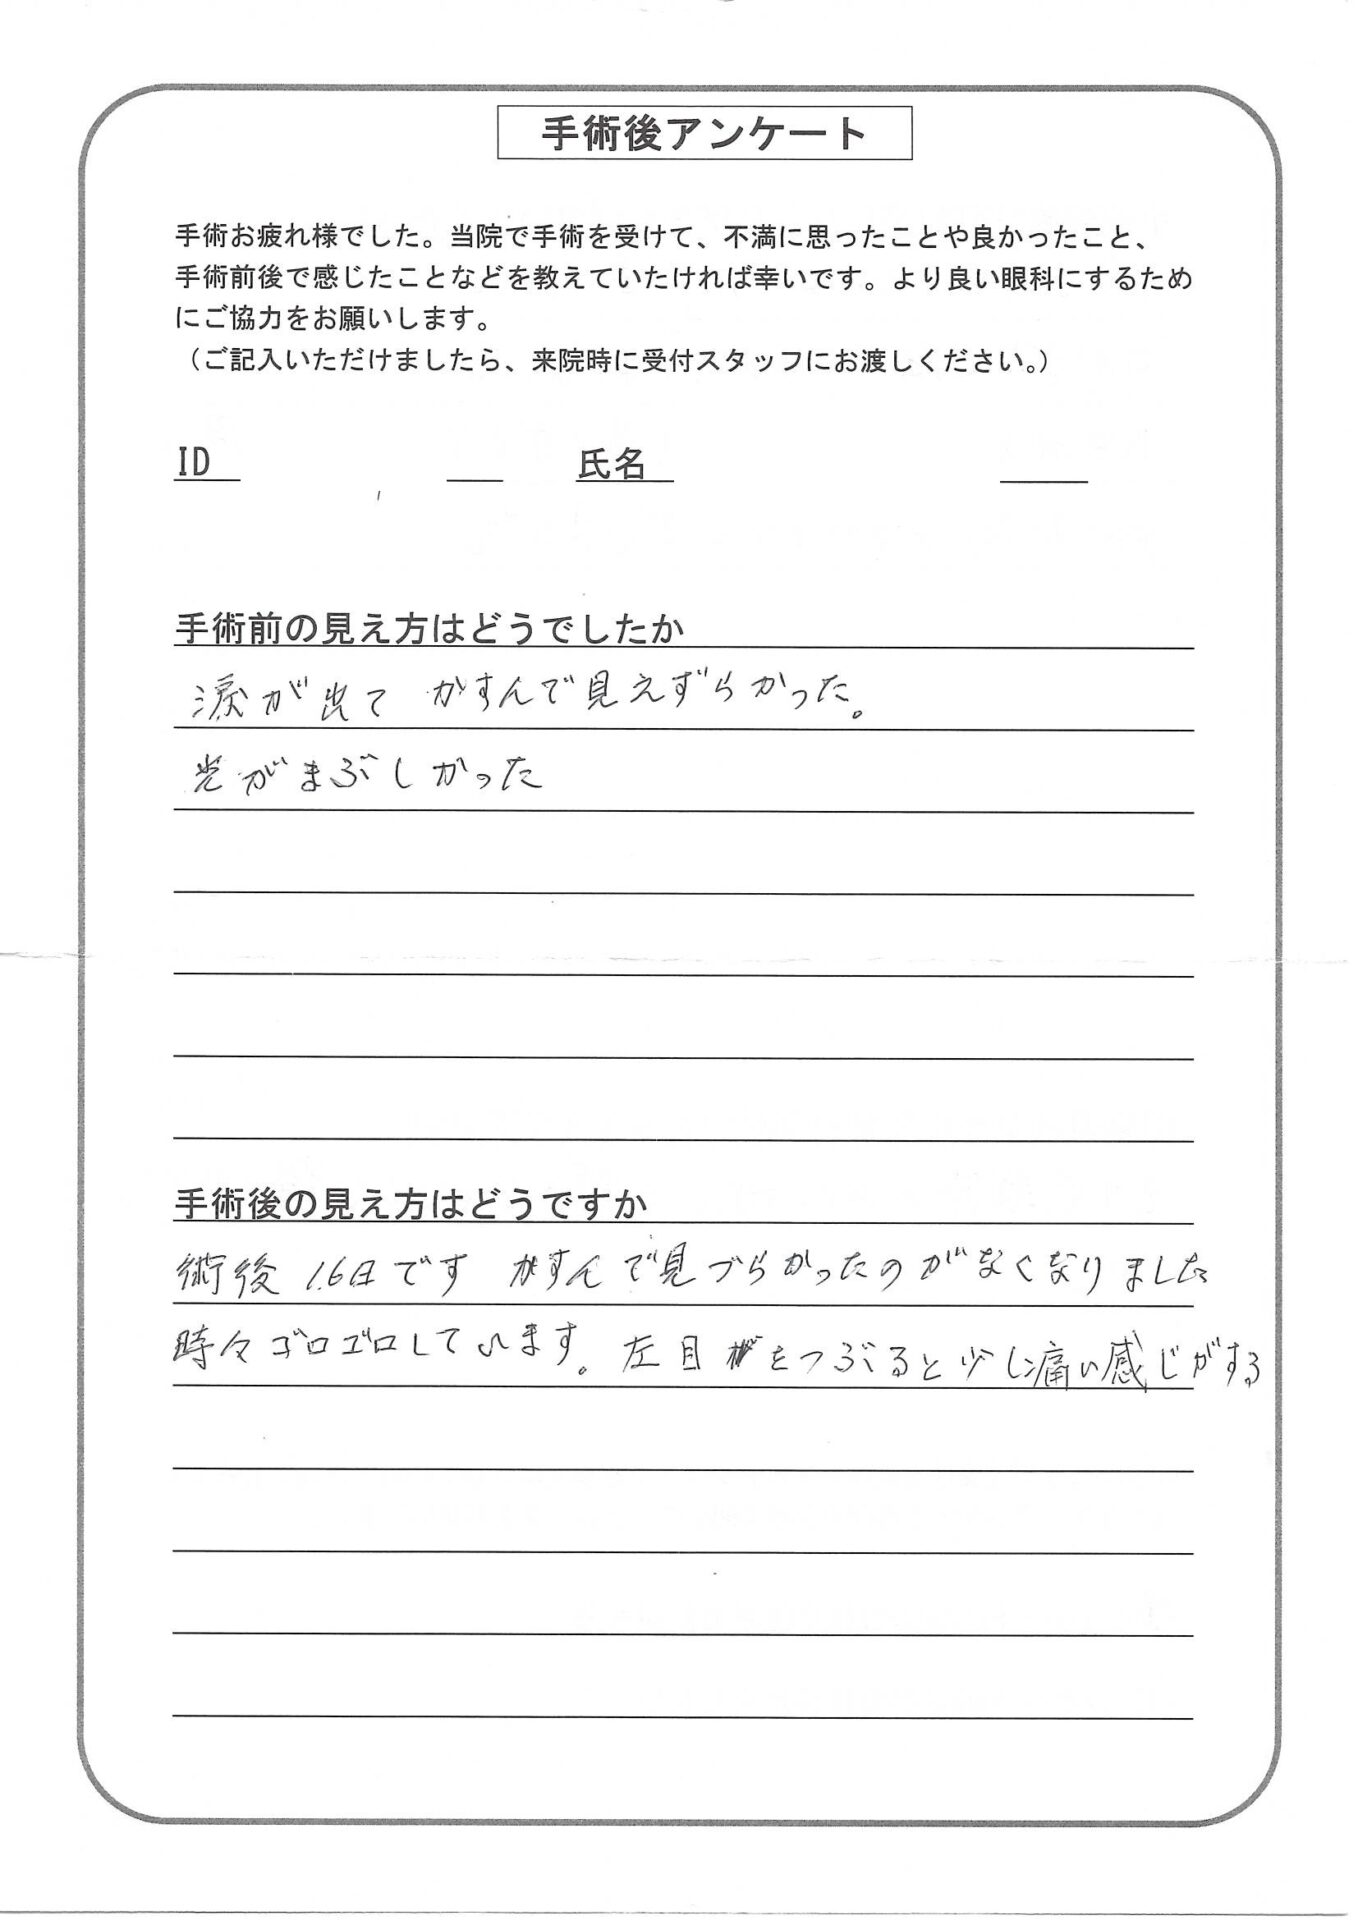 手術後アンケート
手術お疲れ様でした。当院で手術を受けて、不満に思ったことや良かったこと、
手術前後で感じたことなどを教えていたければ幸いです。より良い眼科にするため
にご協力をお願いします。
（ご記入いただけましたら、来院時に受付スタッフにお渡しください。）
ID 氏名
手術前の見え方はどうでしたか
涙が出て かすんで見えずらかった。
光がまぶしかった
手術後の見え方はどうですか
術後16日です かすんで見づらかったのがなくなりました
時々ゴロゴロしています。左目をつぶると少し痛い感じがする